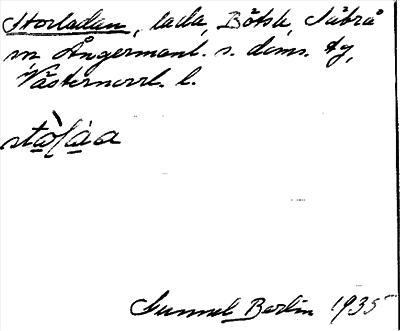 Storladan, lada, Bölsk, Säbrå
sn Ångermanl. s. doms. tg,
Västernorrl. l.
stòlàa
Gunnel Berlin 1935